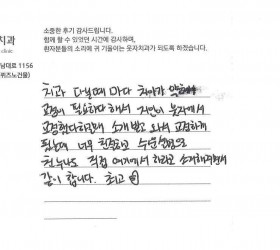 소중한 후기 감사드립니다.
함께 할 수 있었던 시간에 감사하며,
환자분들의 소리에 귀 기울이는 웃자치과가 되도록 하겠습니다.
치과
clinic
남대로 1156
퀴즈노건물)
치과 다닐때 마다 치아가
교정이 필요하다 해서 지인이 웃자에서
교정했다하길래 소개 받고 와서 교정하게
됐는데 너무 친절하고
친구나도 직접 여기저기 하라고 소개해주면서
같이 합니다. 최고